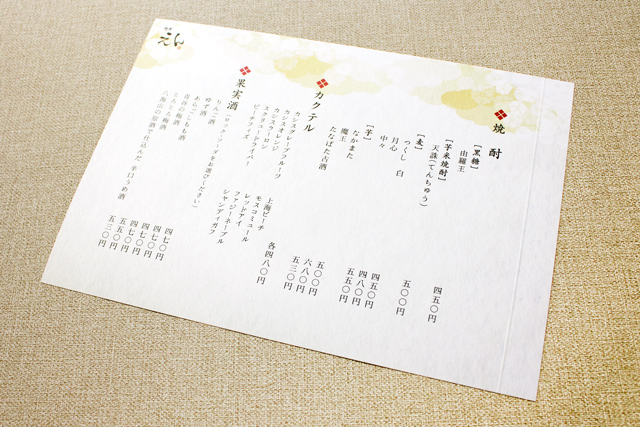 焼酎
［黒糖］
由羅王
［芋米焼酎］
天誅（てんちゅう） 四五〇円
［麦］
つくし 白 五〇〇円
月心 四五〇円
中々 四八〇円
［芋］
なかまた 五五〇円
魔王 六八〇円
たなばた古酒 五〇〇円
カクテル
カシスグレープフルーツ
カシスオレンジ
カシスウーロン
スクリュードライバー
ピーチフィズ
上海ピーチ
モスコミュール
レッドアイ
ファジーネーブル
シャンディガフ
各四八〇円
果実酒
（ロック・ソーダをお選びください）
りんご酒 四七〇円
ゆず酒 四七〇円
あらごしもも酒 四七〇円
青谷の梅酒 四七〇円
とろとろ梅酒 五五〇円
八海山の原酒で仕込んだ辛口うめ酒 五三〇円
えん